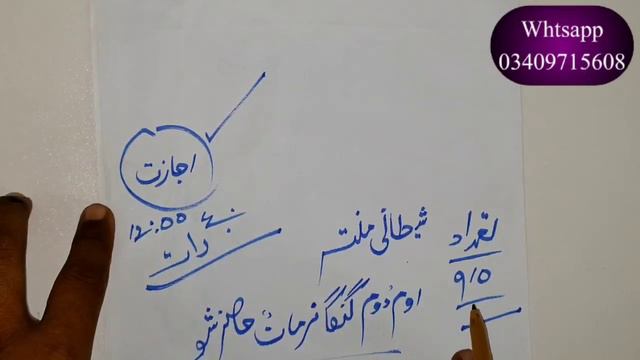 Whtsapp
03409715608
اجازت
12:00 بجے
رات
تعداد
915
شیطانی منتر
اوم دوم گنگا نرمات حاضر شو